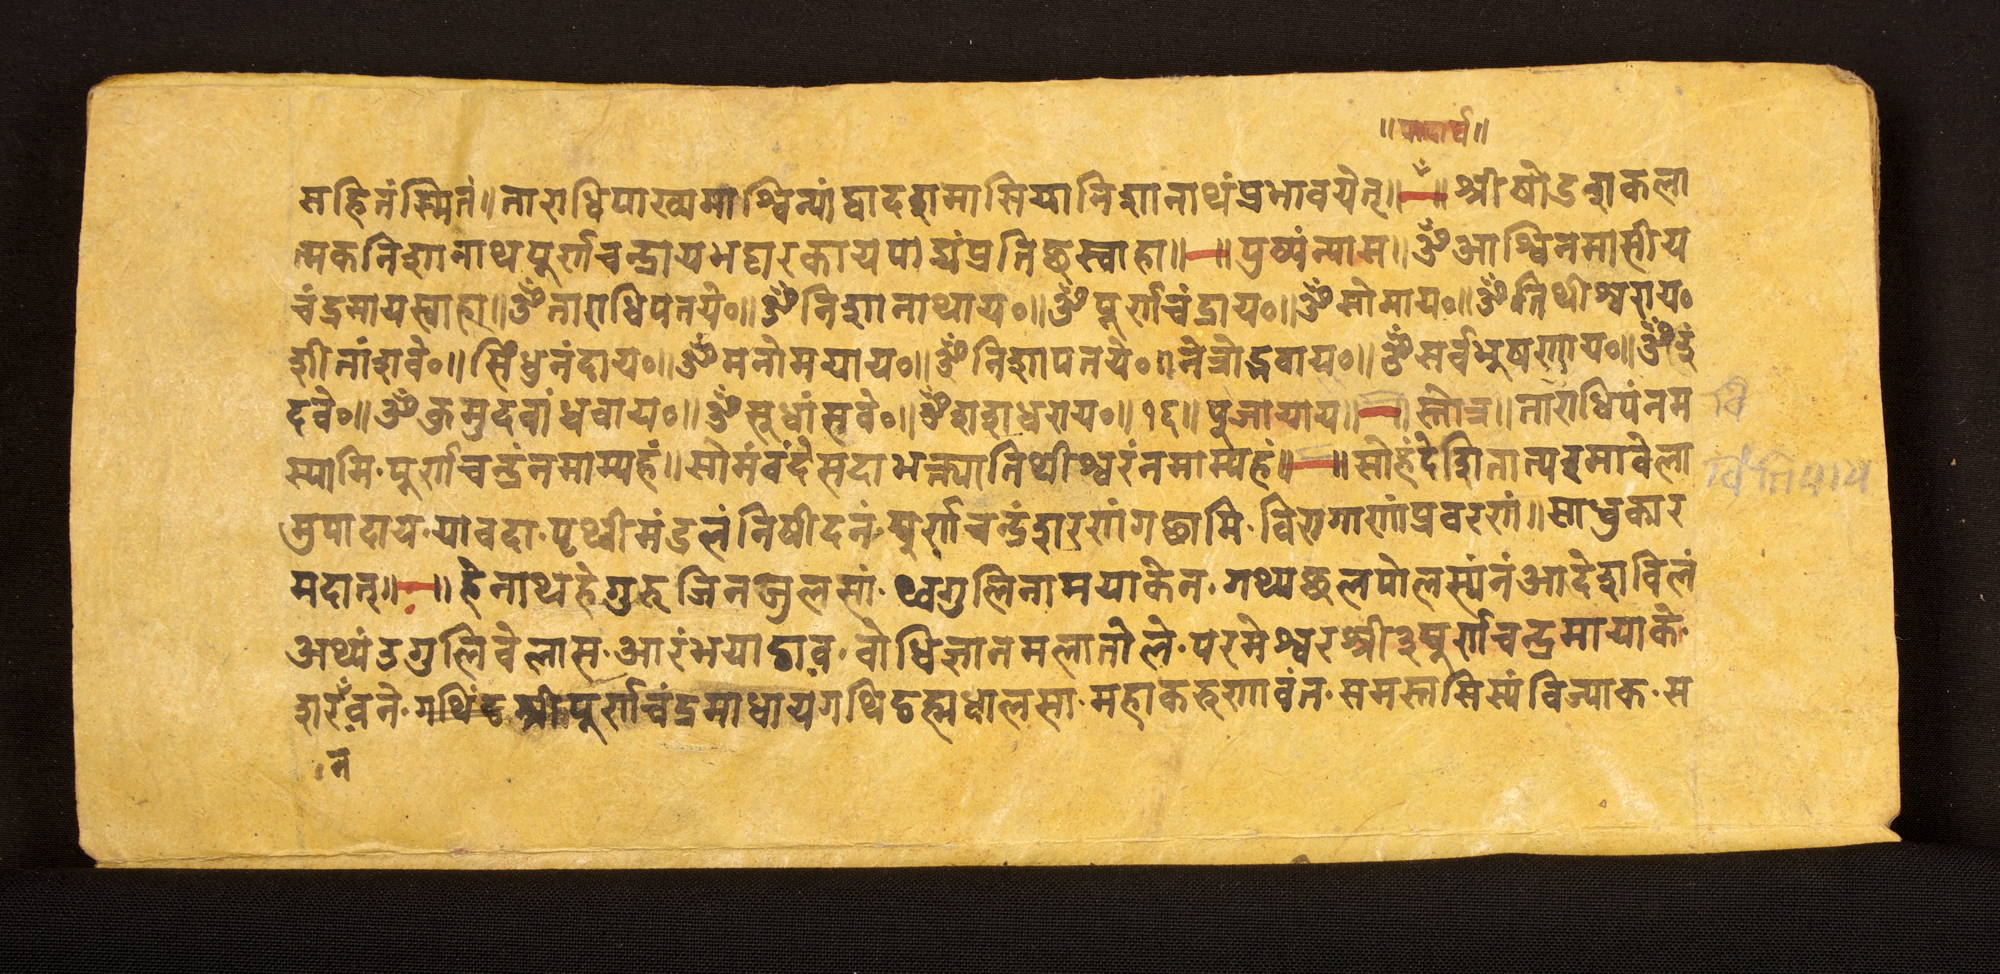 ॥पादार्घ॥
सहितंस्मितं॥ताराधिपाख्यमाश्विन्यांद्वादशमासियामिशानाथंप्रभावयेत्॥—॥ श्रीषोडशकला
त्मकनिशानाथपुर्णचन्द्रायभट्टारकायपाद्यंप्रतिच्छस्वाहा॥—॥पुष्पंन्यास॥ॐआश्विनमासीय
चंद्रमायस्वाहा॥ॐताराधिपतये०॥ॐनिशानाथाय०॥ॐपूर्णचंद्राय०॥ॐसोमाय०॥ॐतिथीश्वराय०
शीतांशवे०॥सिंधुनंदाय०॥ॐमनोमयाय०॥ॐनिशापतये०॥नेत्रोद्भवाय०॥ॐसर्वभुषणाय०॥ॐइं
दवे०॥ॐकुमुदवांधवाय०॥ॐसूधांसवे०॥ॐशशधराय०॥१६॥पुजायाय॥—॥स्तोत्र॥ताराधिपंनम
स्यामि·पुर्णचन्द्रंनमाम्यहं॥सोमंवंदेसदाभक्त्यातिथीश्वरंनमाम्यहं॥—॥सोहंदेशितात्यइमावेला
मुपादाय·यावदा·पृथ्वीमंडलंनिषीदनं·पुर्णचन्द्रंशरणंगछामि·विरागाणांप्रवरणं॥साधुकार
मदात्॥—॥हेनाथहेगुरुजिनञुलसां·थ्वगुलिनामयाकेन·गथ्यछुलपोलस्यंनंआदेशविलं
अथ्यंङगुलिवेलास·आरंभयाङाव·वोधिज्ञानमलातोले·परमेश्वरश्री३पुर्णचन्द्रमायाके·
शरंवने·गथिंङश्रीपुर्णचंद्रमाधायगथिङह्मधालसा·महाकरुणावंत·समस्तसिस्यंविज्याक·स
न
वि